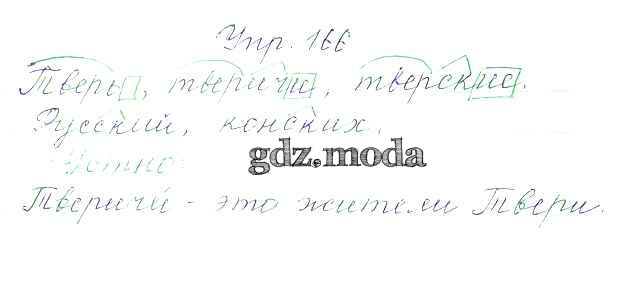 Упр. 166
Тверь, тверичи, тверские.
Русский, конских.
Устно
gdz.moda
Тверичи́ - это жители Твери.